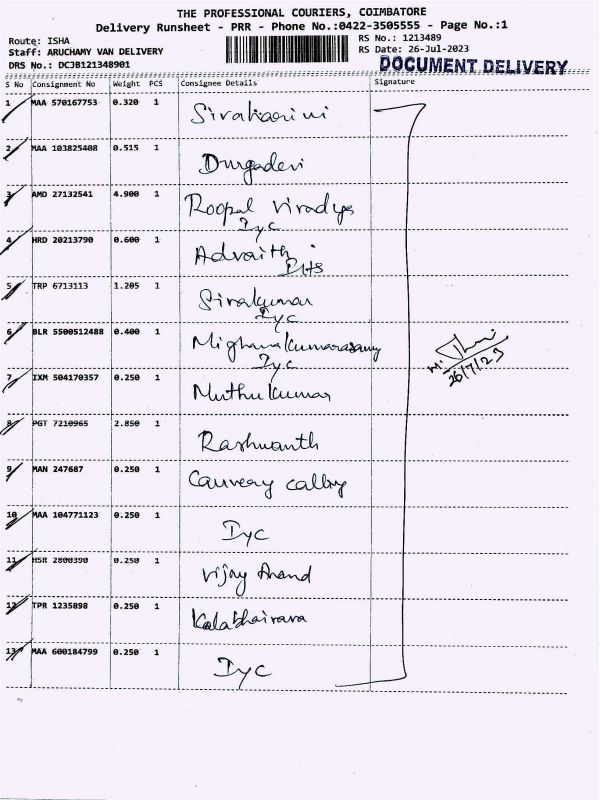 THE PROFESSIONAL COURIERS, COIMBATORE
Delivery Runsheet - PRR - Phone No.:0422-3505555 - Page No.:1
Route: ISHA
RS No.: 1213489
Staff: ARUCHAMY VAN DELIVERY
RS Date: 26-Jul-2023
DRS No.: DCJB121348901
DOCUMENT DELIVERY
S No Consignment No Weight PCS Consignee Details Signature
1 MAA 570167753 0.320 1 Sivahasini
2 MAA 103825408 0.515 1 Durgadevi
3 AMD 27132541 4.900 1 Roopal Viradya
Iyc
4 HRD 20213790 0.600 1 Advaith
IHS
5 TRP 6713113 1.205 1 Sivakumar
Iyc
6 BLR 5500512488 0.400 1 Mighanakumarasamy
Iyc
M.
26/7/23
7 IXM 504170357 0.250 1 Muthukumar
8 PGT 7210965 2.850 1 Rashwanth
9 MAN 247687 0.250 1 Cauvery
10 MAA 104771123 0.250 1 Iyc
11 HSR 2800390 0.250 1 Vijay Anand
12 TPR 1235898 0.250 1 Kalabhairava
13 MAA 600184799 0.250 1 Iyc